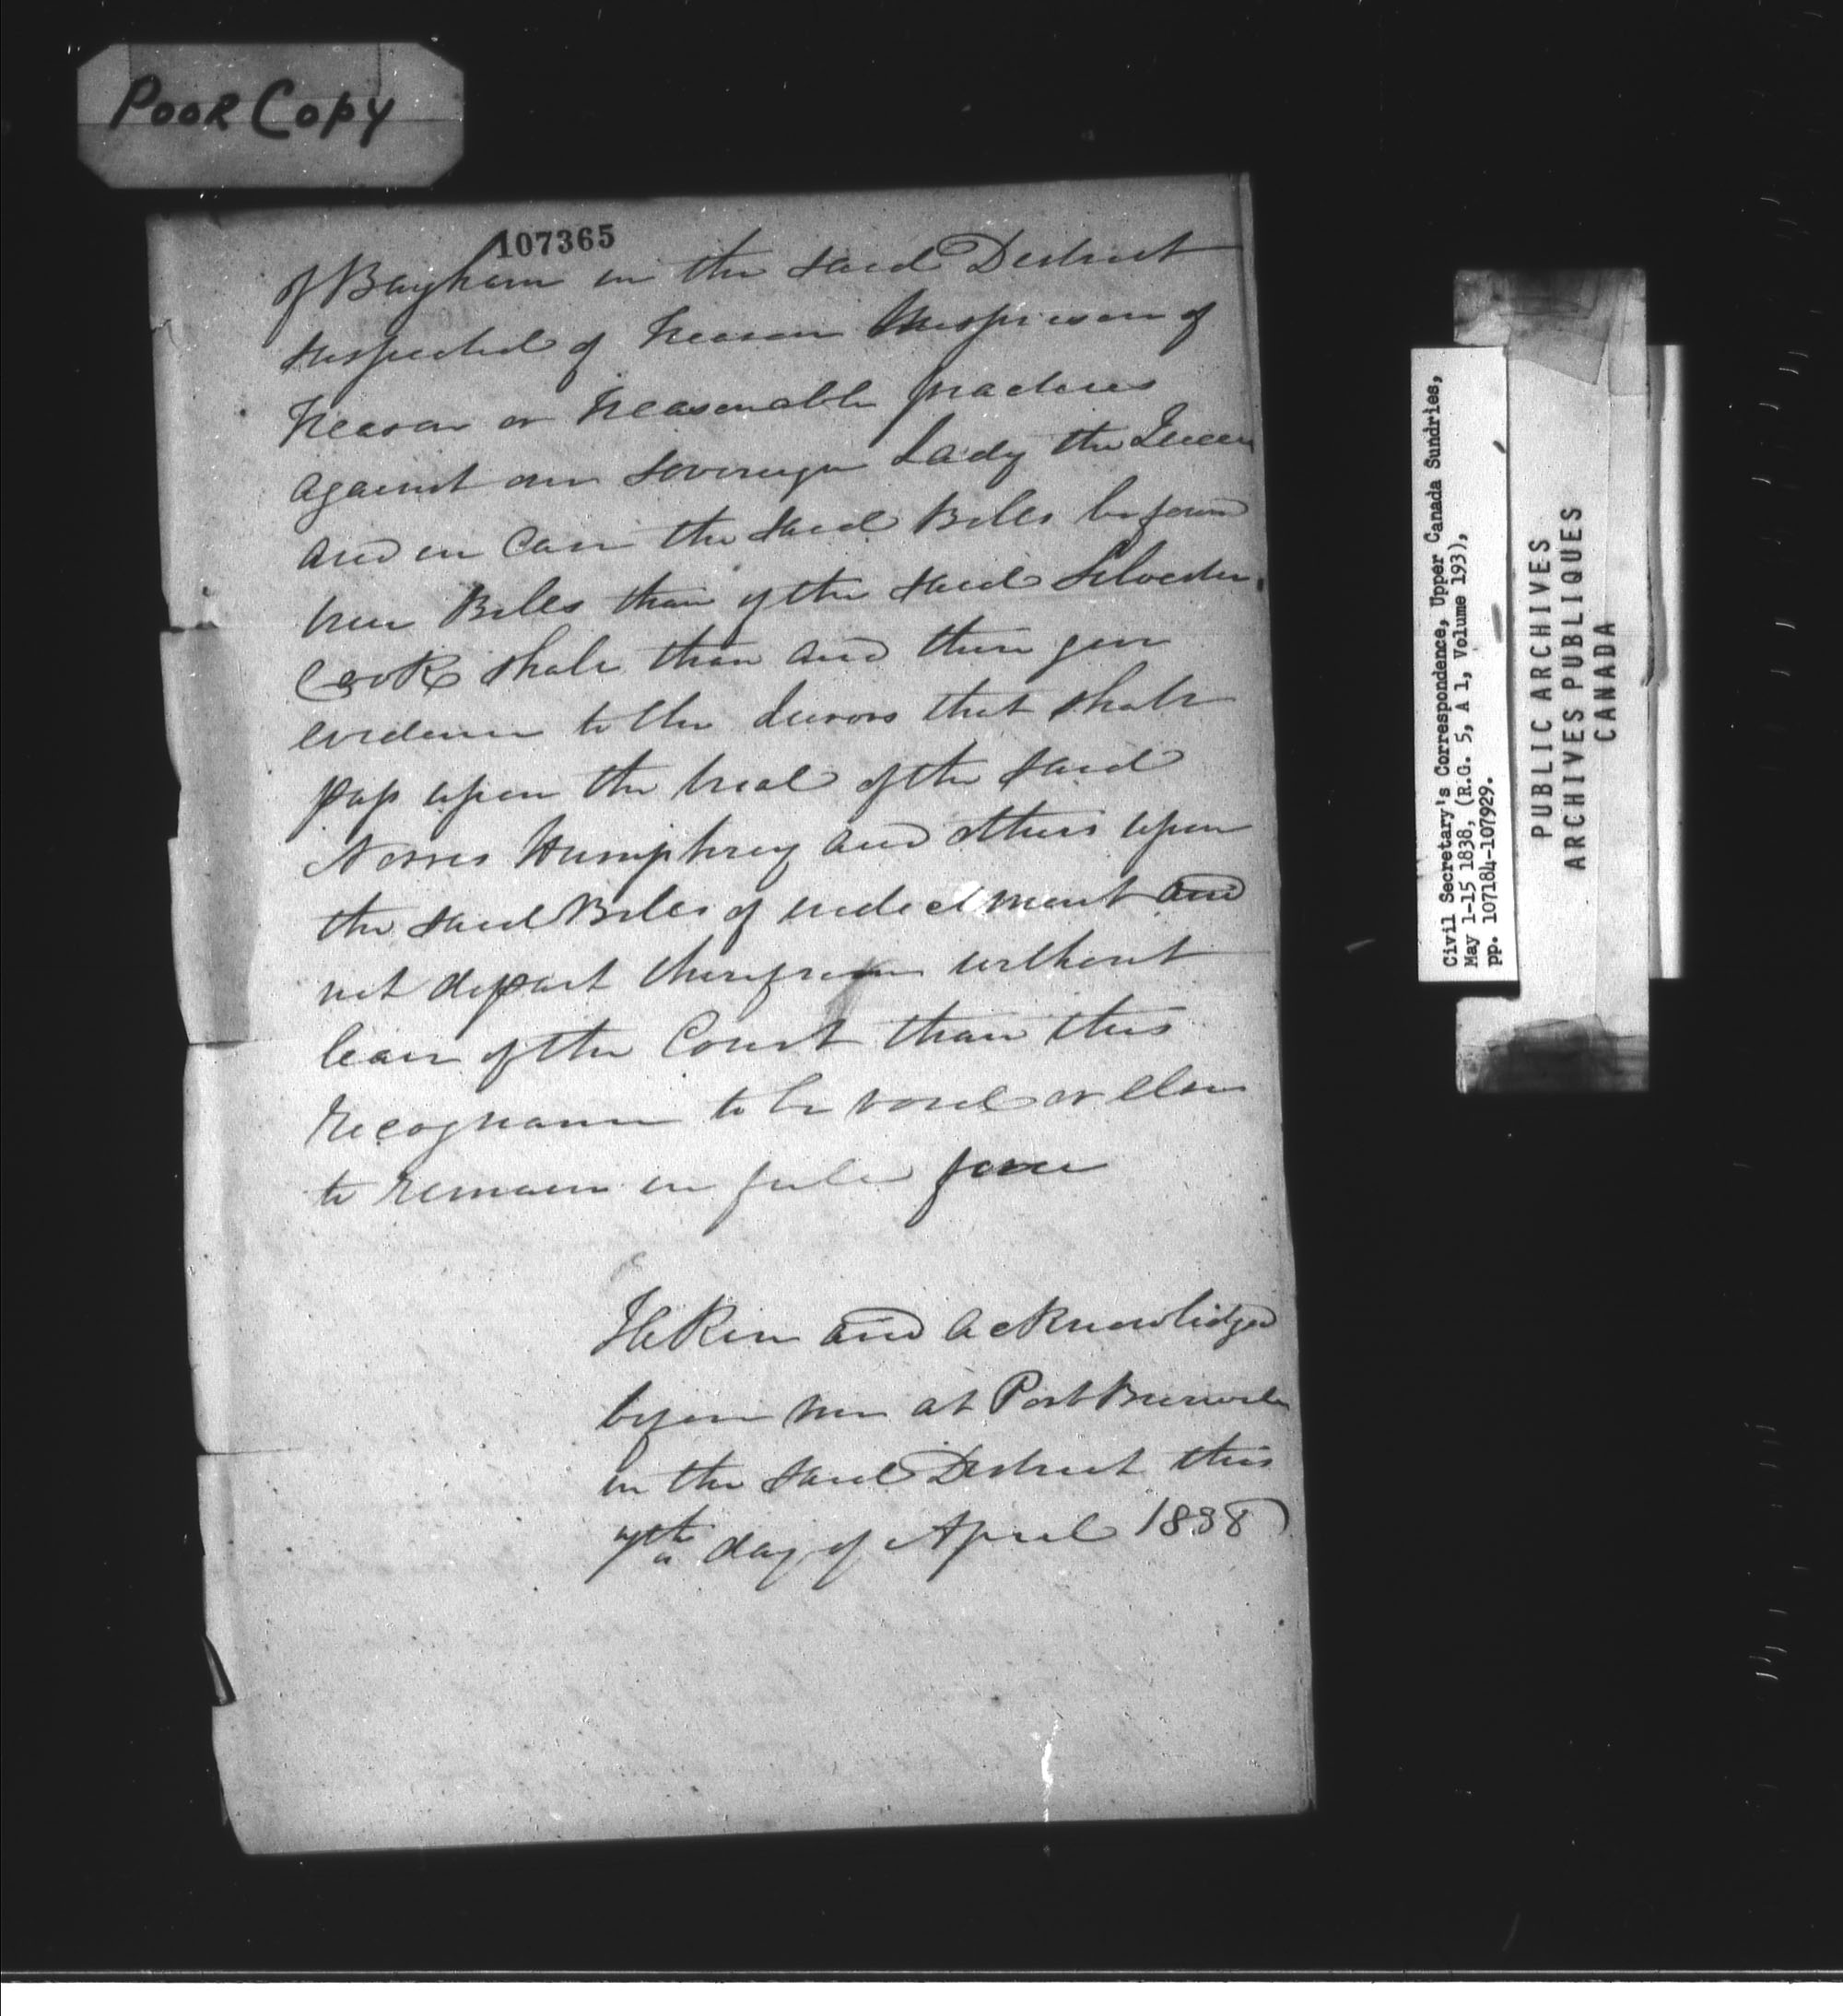 Poor Copy
107365
of Bayham in the said District
suspected of treason Misprision of
treason or treasonable practices
against our Sovereign Lady the Queen
and in case the said Bills be found
true Bills then if the said Silvester
Cook shall then and there give
evidence to the Jurors that shall
pass upon the trial of the said
Norris Humphrey and others upon
the said Bills of indictment and
not depart therefrom without
leave of the Court then this
recognizance to be void or else
to remain in full force
Taken and acknowledged
before me at Port Burwell
in the said District this
7th day of April 1838
Civil Secretary's Correspondence, Upper Canada Sundries,
May 1-15 1838, (R.G. 5, A 1, Volume 193),
pp. 107184-107929.
PUBLIC ARCHIVES
ARCHIVES PUBLIQUES
CANADA